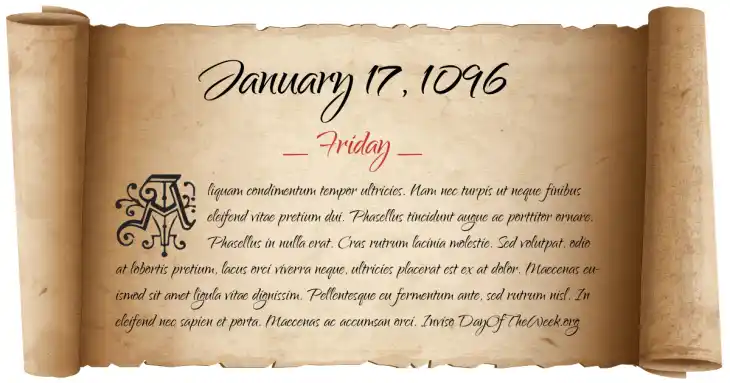 January 17, 1096
__ Friday __
Aliquam condimentum tempor ultricies. Nam nec turpis ut neque finibus
eleifend vitae pretium dui. Phasellus tincidunt augue ac porttitor ornare.
Phasellus in nulla erat. Cras rutrum lacinia molestie. Sed volutpat, odio
at lobortis pretium, lacus orci viverra neque, ultricies placerat est ex at dolor. Maecenas eu-
ismod sit amet ligula vitae dignissim. Pellentesque eu fermentum ante, sed rutrum nisl. In
eleifend nec sapien et porta. Maecenas ac accumsan orci. Inviso DayOfTheWeek.org